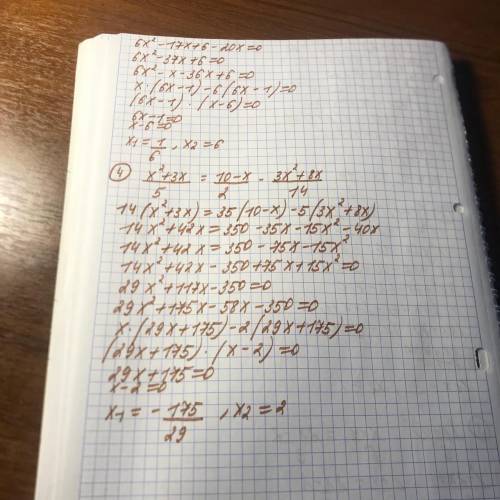 6x² - 17x + 6 - 20x = 0
6x² - 37x + 6 = 0
6x² - x - 36x + 6 = 0
x · (6x - 1) - 6(6x - 1) = 0
(6x - 1) · (x - 6) = 0
6x - 1 = 0
x - 6 = 0
x₁ = 1/6, x₂ = 6
④ (x² + 3x)/5 = (10 - x)/2 - (3x² + 8x)/14
14(x² + 3x) = 35(10 - x) - 5(3x² + 8x)
14x² + 42x = 350 - 35x - 15x² - 40x
14x² + 42x = 350 - 75x - 15x²
14x² + 42x - 350 + 75x + 15x² = 0
29x² + 117x - 350 = 0
29x² + 175x - 58x - 350 = 0
x · (29x + 175) - 2(29x + 175) = 0
(29x + 175) · (x - 2) = 0
29x + 175 = 0
x - 2 = 0
x₁ = - 175/29, x₂ = 2